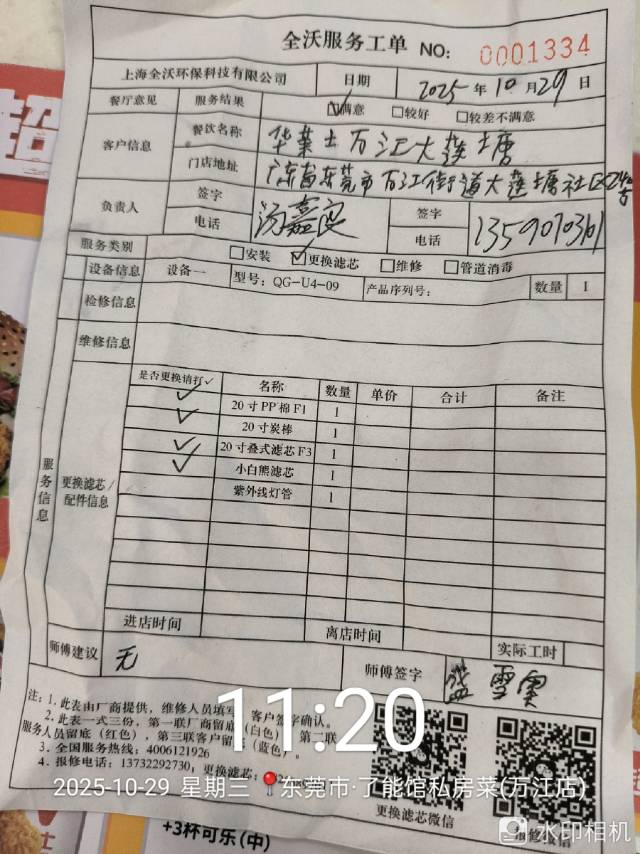 全沃服务工单 NO: 0001334
上海全沃环保科技有限公司 日期 2025年10月29日
餐厅意见 服务结果 ☑满意 □较好 □较差不满意
客户信息 餐饮名称 华莱士万江大莲塘
门店地址 广东省东莞市万江街道大莲塘社区
负责人 签字 汤嘉 签字
电话 电话
服务类别 □安装 ☑更换滤芯 □维修 □管道消毒
设备信息 设备一 型号: QG-U4-09 产品序列号: 数量 1
检修信息
维修信息
服务信息
更换滤芯/配件信息
是否更换请打✓ 名称 数量 单价 合计 备注
✓ 20寸PP棉F1 1
✓ 20寸炭棒 1
✓ 20寸叠式滤芯F3 1
✓ 小白熊滤芯 1
紫外线灯管 1
进店时间 离店时间 实际工时
师傅建议 无 师傅签字 盛雪
注: 1. 此表由厂商提供，维修人员填写，客户签字确认。
2. 此表一式三份，第一联厂商留底（白色） 第二联
服务人员留底（红色），第三联客户留（蓝色）。
3. 全国服务热线: 4006121926
4. 报修电话: 13732292730; 更换滤芯:
更换滤芯微信
11:20
2025-10-29 星期三 东莞市·了能馆私房菜(万江店)
水印相机
+3杯可乐(中)